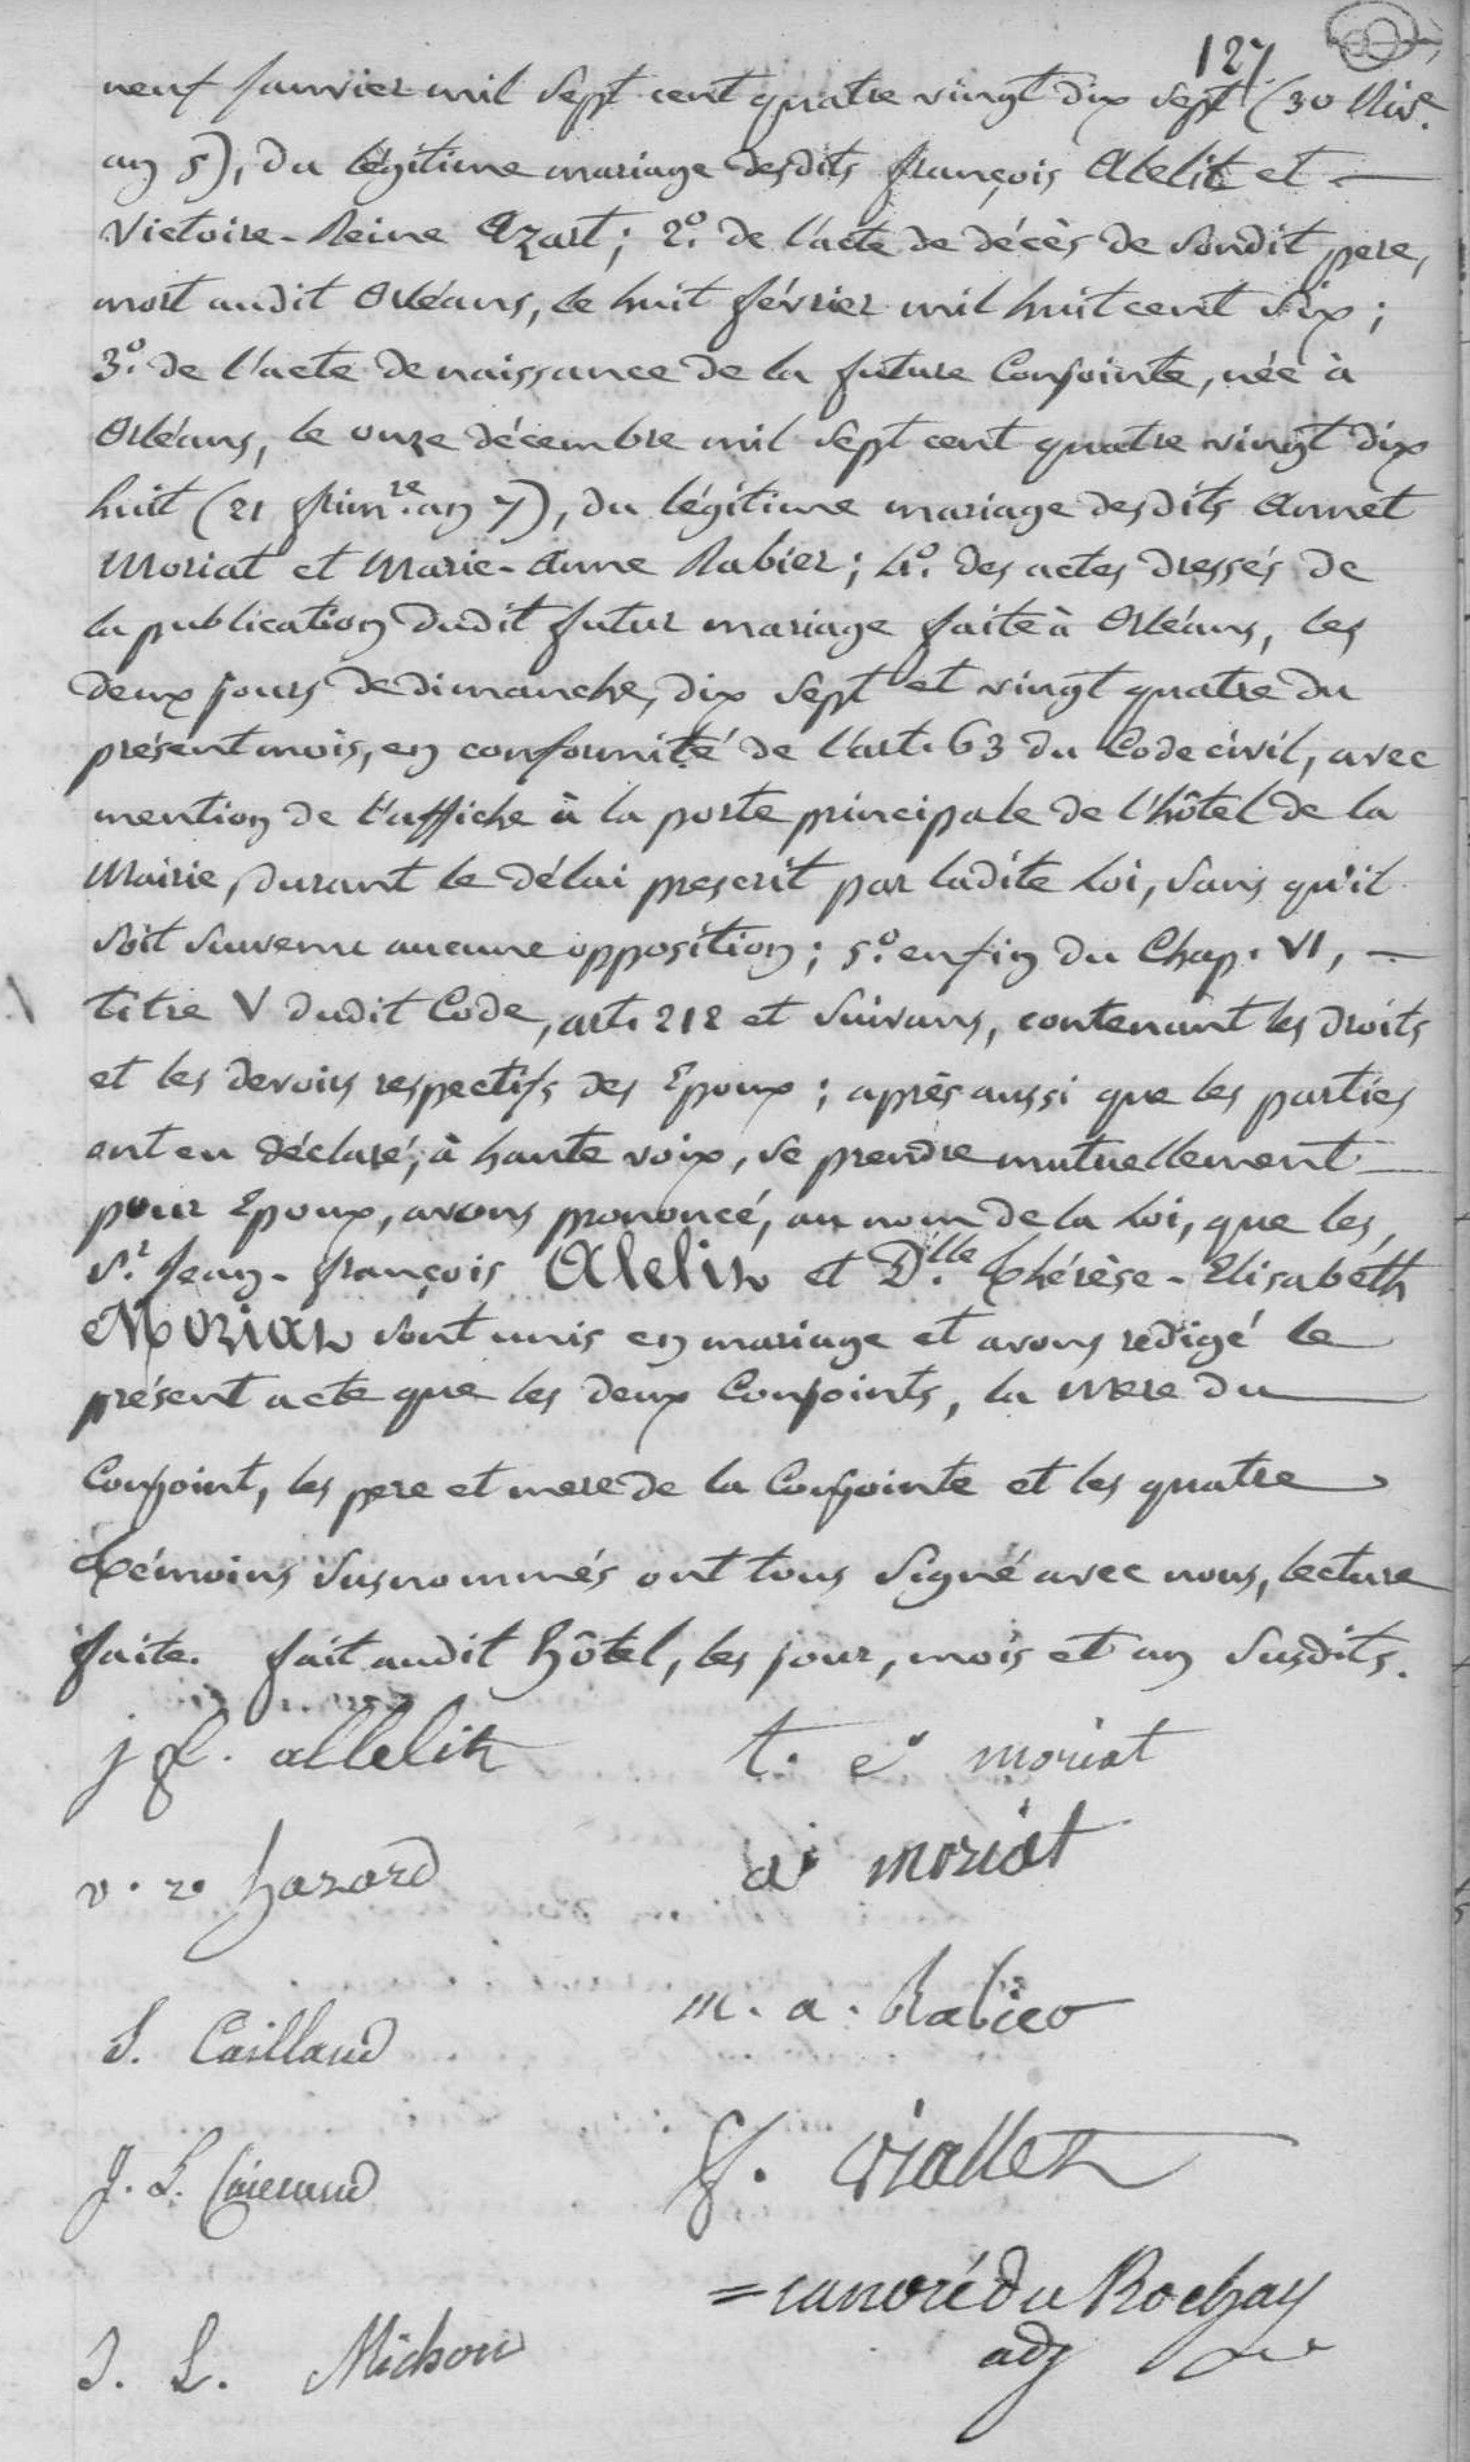 127
neuf janvier mil sept cent quatre vingt dix sept (30 Niv.e
an 5), du légitime mariage desdits françois Alelit et —
Victoire-Reine Azart; 2.o de l'acte de décès de sondit pere,
mort audit Orléans, le huit février mil huit cent dix;
3.o de l'acte de naissance de la future Conjointe, née à
Orléans, le onze décembre mil sept cent quatre vingt dix
huit (21 frim.re an 7), du légitime mariage desdits Annet
Moriat et Marie-Anne Rabier; 4.o des actes dressés de
la publication dudit futur mariage faite à Orléans, les
deux jours de dimanche, dix sept et vingt quatre du
présent mois, en conformité de l'art. 63 du Code civil, avec
mention de l'affiche à la porte principale de l'hôtel de la
Mairie, durant le délai prescrit par ladite Loi, sans qu'il
soit survenu aucune opposition; 5.o enfin du Chap. VI, —
titre V dudit Code, art. 212 et suivans, contenant les droits
et les devoirs respectifs des Epoux; après aussi que les parties
ont eu déclaré, à haute voix, se prendre mutuellement —
pour Epoux, avons prononcé, au nom de la Loi, que les
S.r Jean-françois Alelit et D.lle Thérèse-Elisabeth
Moriat sont unis en mariage et avons rédigé le
présent acte que les deux Conjoints, la mere du —
Conjoint, les pere et mere de la Conjointe et les quatre
témoins susnommés ont tous signé avec nous, lecture
faite. fait audit hôtel, les jour, mois et an susdits.
j f. allelit t. e. moriat
v. r. hazard a. moriat
S. Caillaud m. a. Rabier
J. L. f. viallet
J. L. Michou = du Rochay
adj